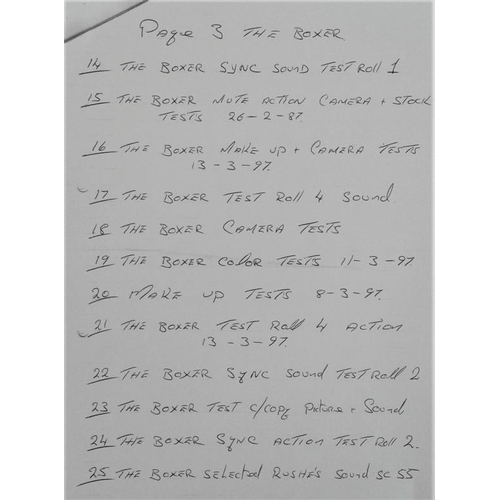 Page 3 THE BOXER
14 THE BOXER SYNC SOUND TEST Roll 1
15 THE BOXER MUTE ACTION CAMERA + STOCK
TESTS 26-2-87.
16 THE BOXER MAKE UP + CAMERA TESTS
13-3-97.
17 THE BOXER TEST Roll 4 Sound
18 THE BOXER CAMERA TESTS
19 THE BOXER COLOR TESTS 11-3-97
20 MAKE UP TESTS 8-3-97.
21 THE BOXER TEST Roll 4 ACTION
13-3-97.
22 THE BOXER SYNC Sound TEST Roll 2
23 THE BOXER TEST C/COPY Picture + Sound
24 THE BOXER SYNC ACTION TEST Roll 2.
25 THE BOXER SELECTED RUSHE'S Sound SC 55